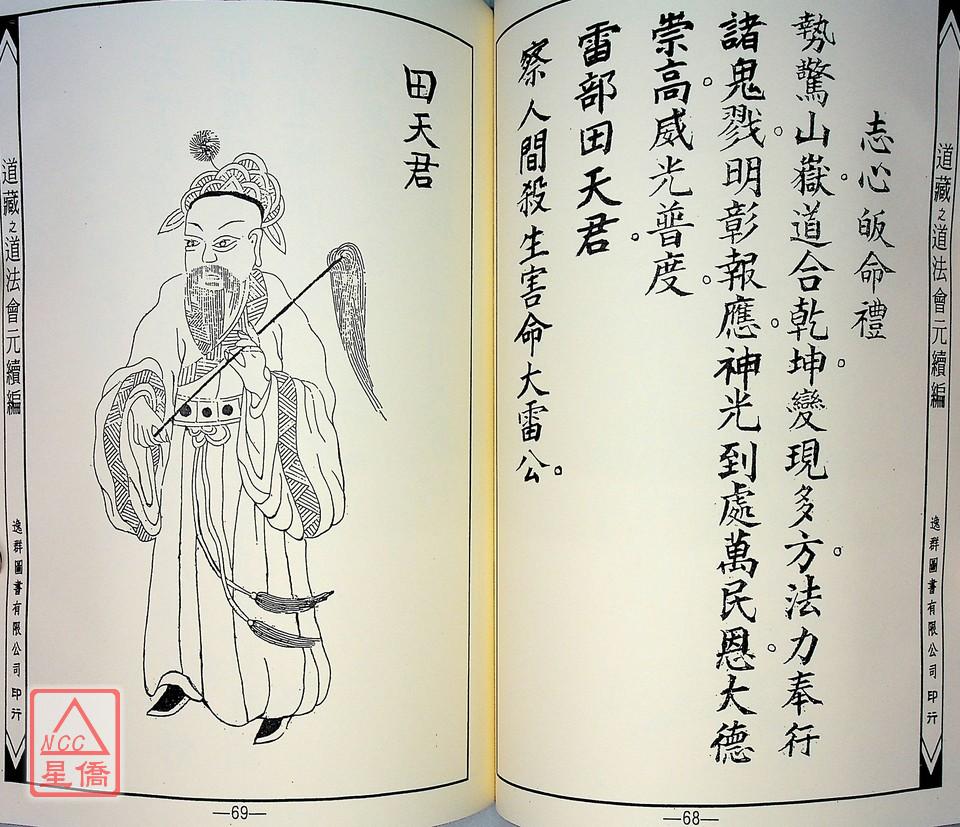 志心皈命禮
勢驚山嶽。道合乾坤。變現多方。法力奉行
諸鬼戮。明彰報應。神光到處萬民恩。大德
崇高。威光普度。
雷部田天君。
察人間殺生害命大雷公。
道藏之道法會元續編
逸群圖書有限公司 印行
—68—
田天君
道藏之道法會元續編
逸群圖書有限公司 印行
—69—
NCC
星僑